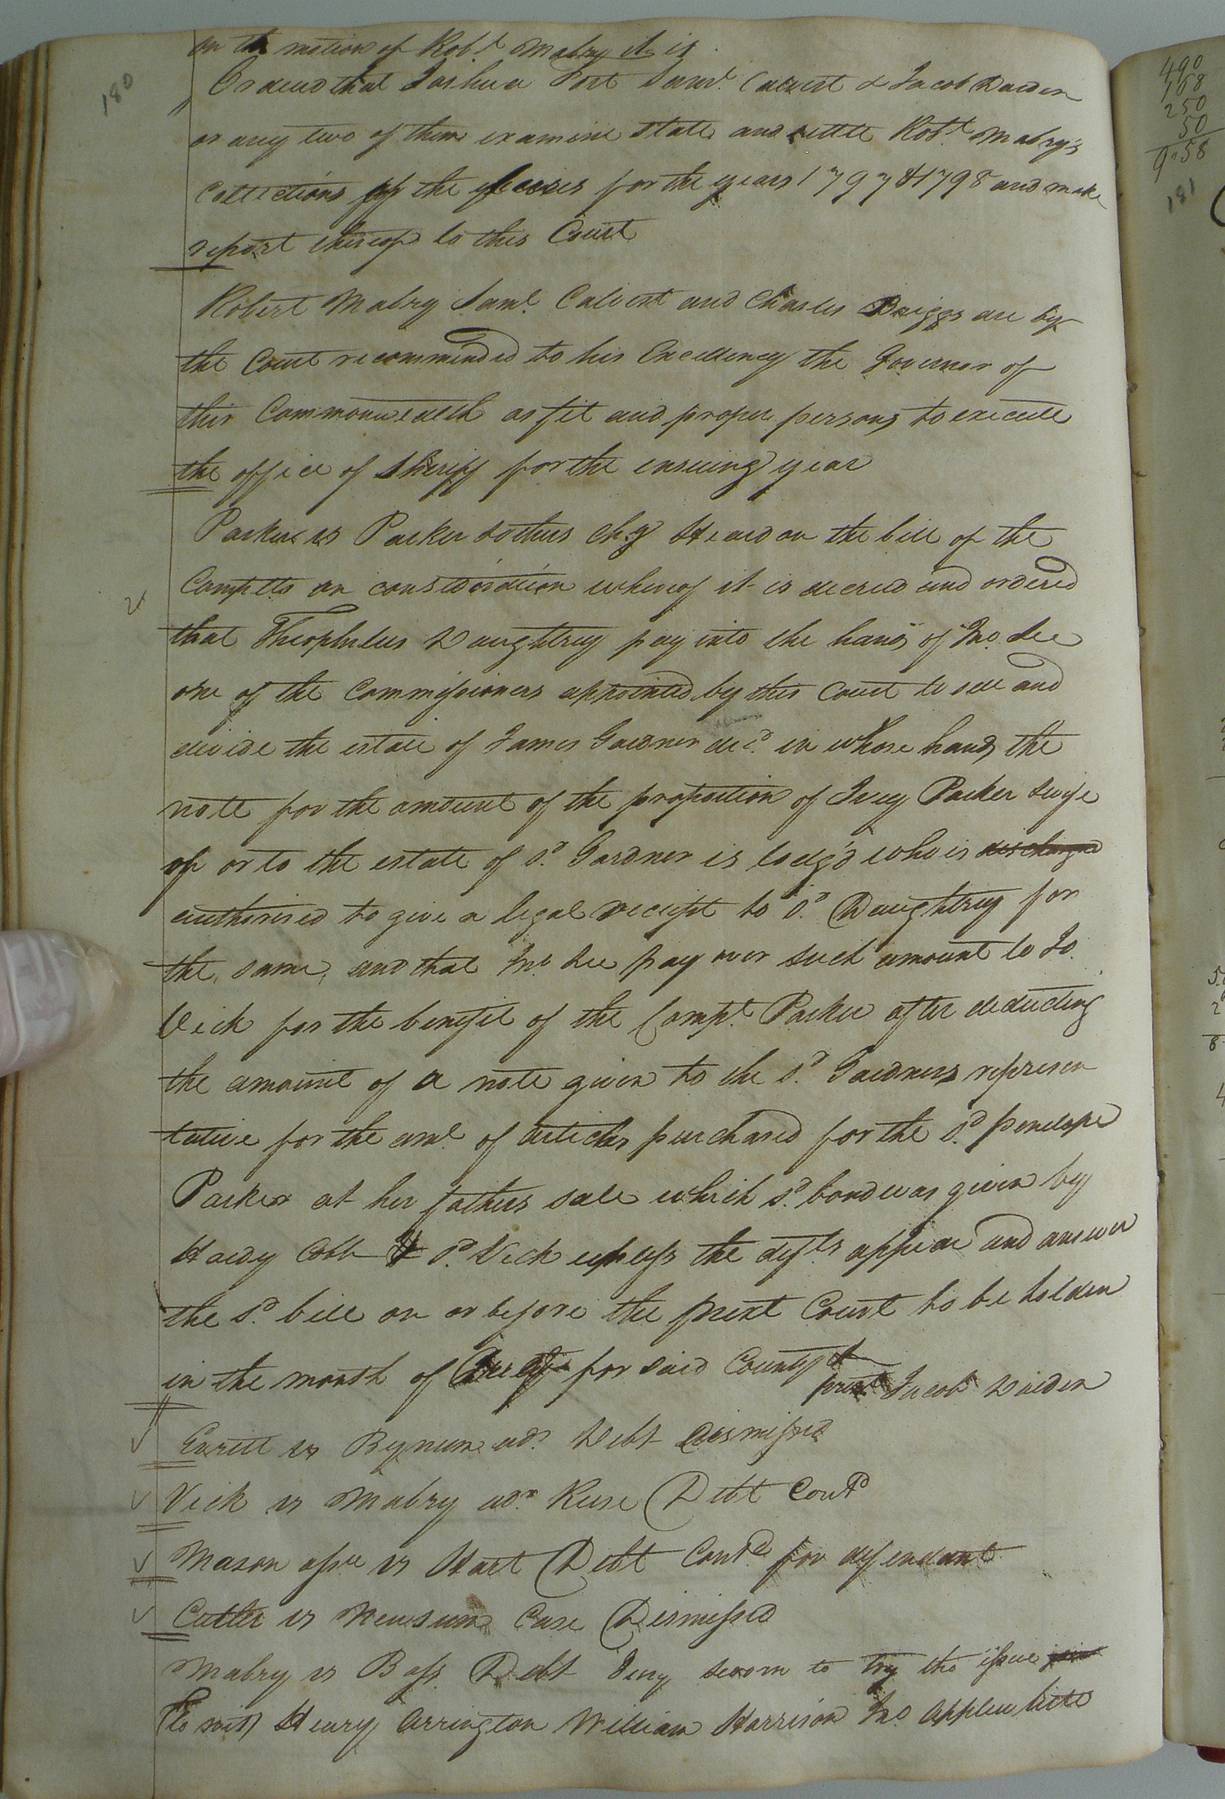 180
on the motion of Robt. Mabry it is
Ordered that Joshua Fort Saml. Calvert & Jacob Darden
or any two of them examine state and settle Robt. Mabry's
Collections of the for the years 1797 & 1798 and make
report thereof to this Court
Robert Mabry Saml. Calvert and Charles Briggs are by
the Court recommended to his Excellency the Governor of
this Commonwealth as fit and proper persons to execute
the office of Sheriff for the ensuing year
Parker vs Parker & others Chy Heard on the bill of the
Complts on consideration whereof it is decreed and ordered
that Theophilus Daughtrey pay into the hands of Jno. Lee
one of the Commissioners appointed by this Court to sell and
devide the estate of James Gardner decd. in whose hands the
note for the amount of the proportion of Ivey Parker & wife
of or to the estate of sd. Gardner is lodg'd who is discharged
authorised to give a legal receipt to sd. Daughtrey for
the same, and that Jno Lee pay over such amount to Jo.
Vick for the benefit of the Compt. Parker after deducting
the amount of a note given to the sd. Gardners represen
tative for the amt. of articles purchased for the sd. Penelope
Parker at her fathers sale which sd. bond was given by
Hardy Cobb & sd. Vick unless the defts appear and answer
the sd. bill on or before the next Court to be holden
in the month of for said County
prest. Jacob Darden
Exrett vs Bynum adr. Debt Dismissed
Vick vs Mabry adr. Kuse Debt Contd
Mason assee vs Hart Debt Contd. for defendant
Cutler vs Newsum Case Dismissed
Mabry vs Bass Debt Jury sworn to try the issue join
(to wit) Henry Arrington William Harrison Jno Applewhite
490
168
250
50
958
181